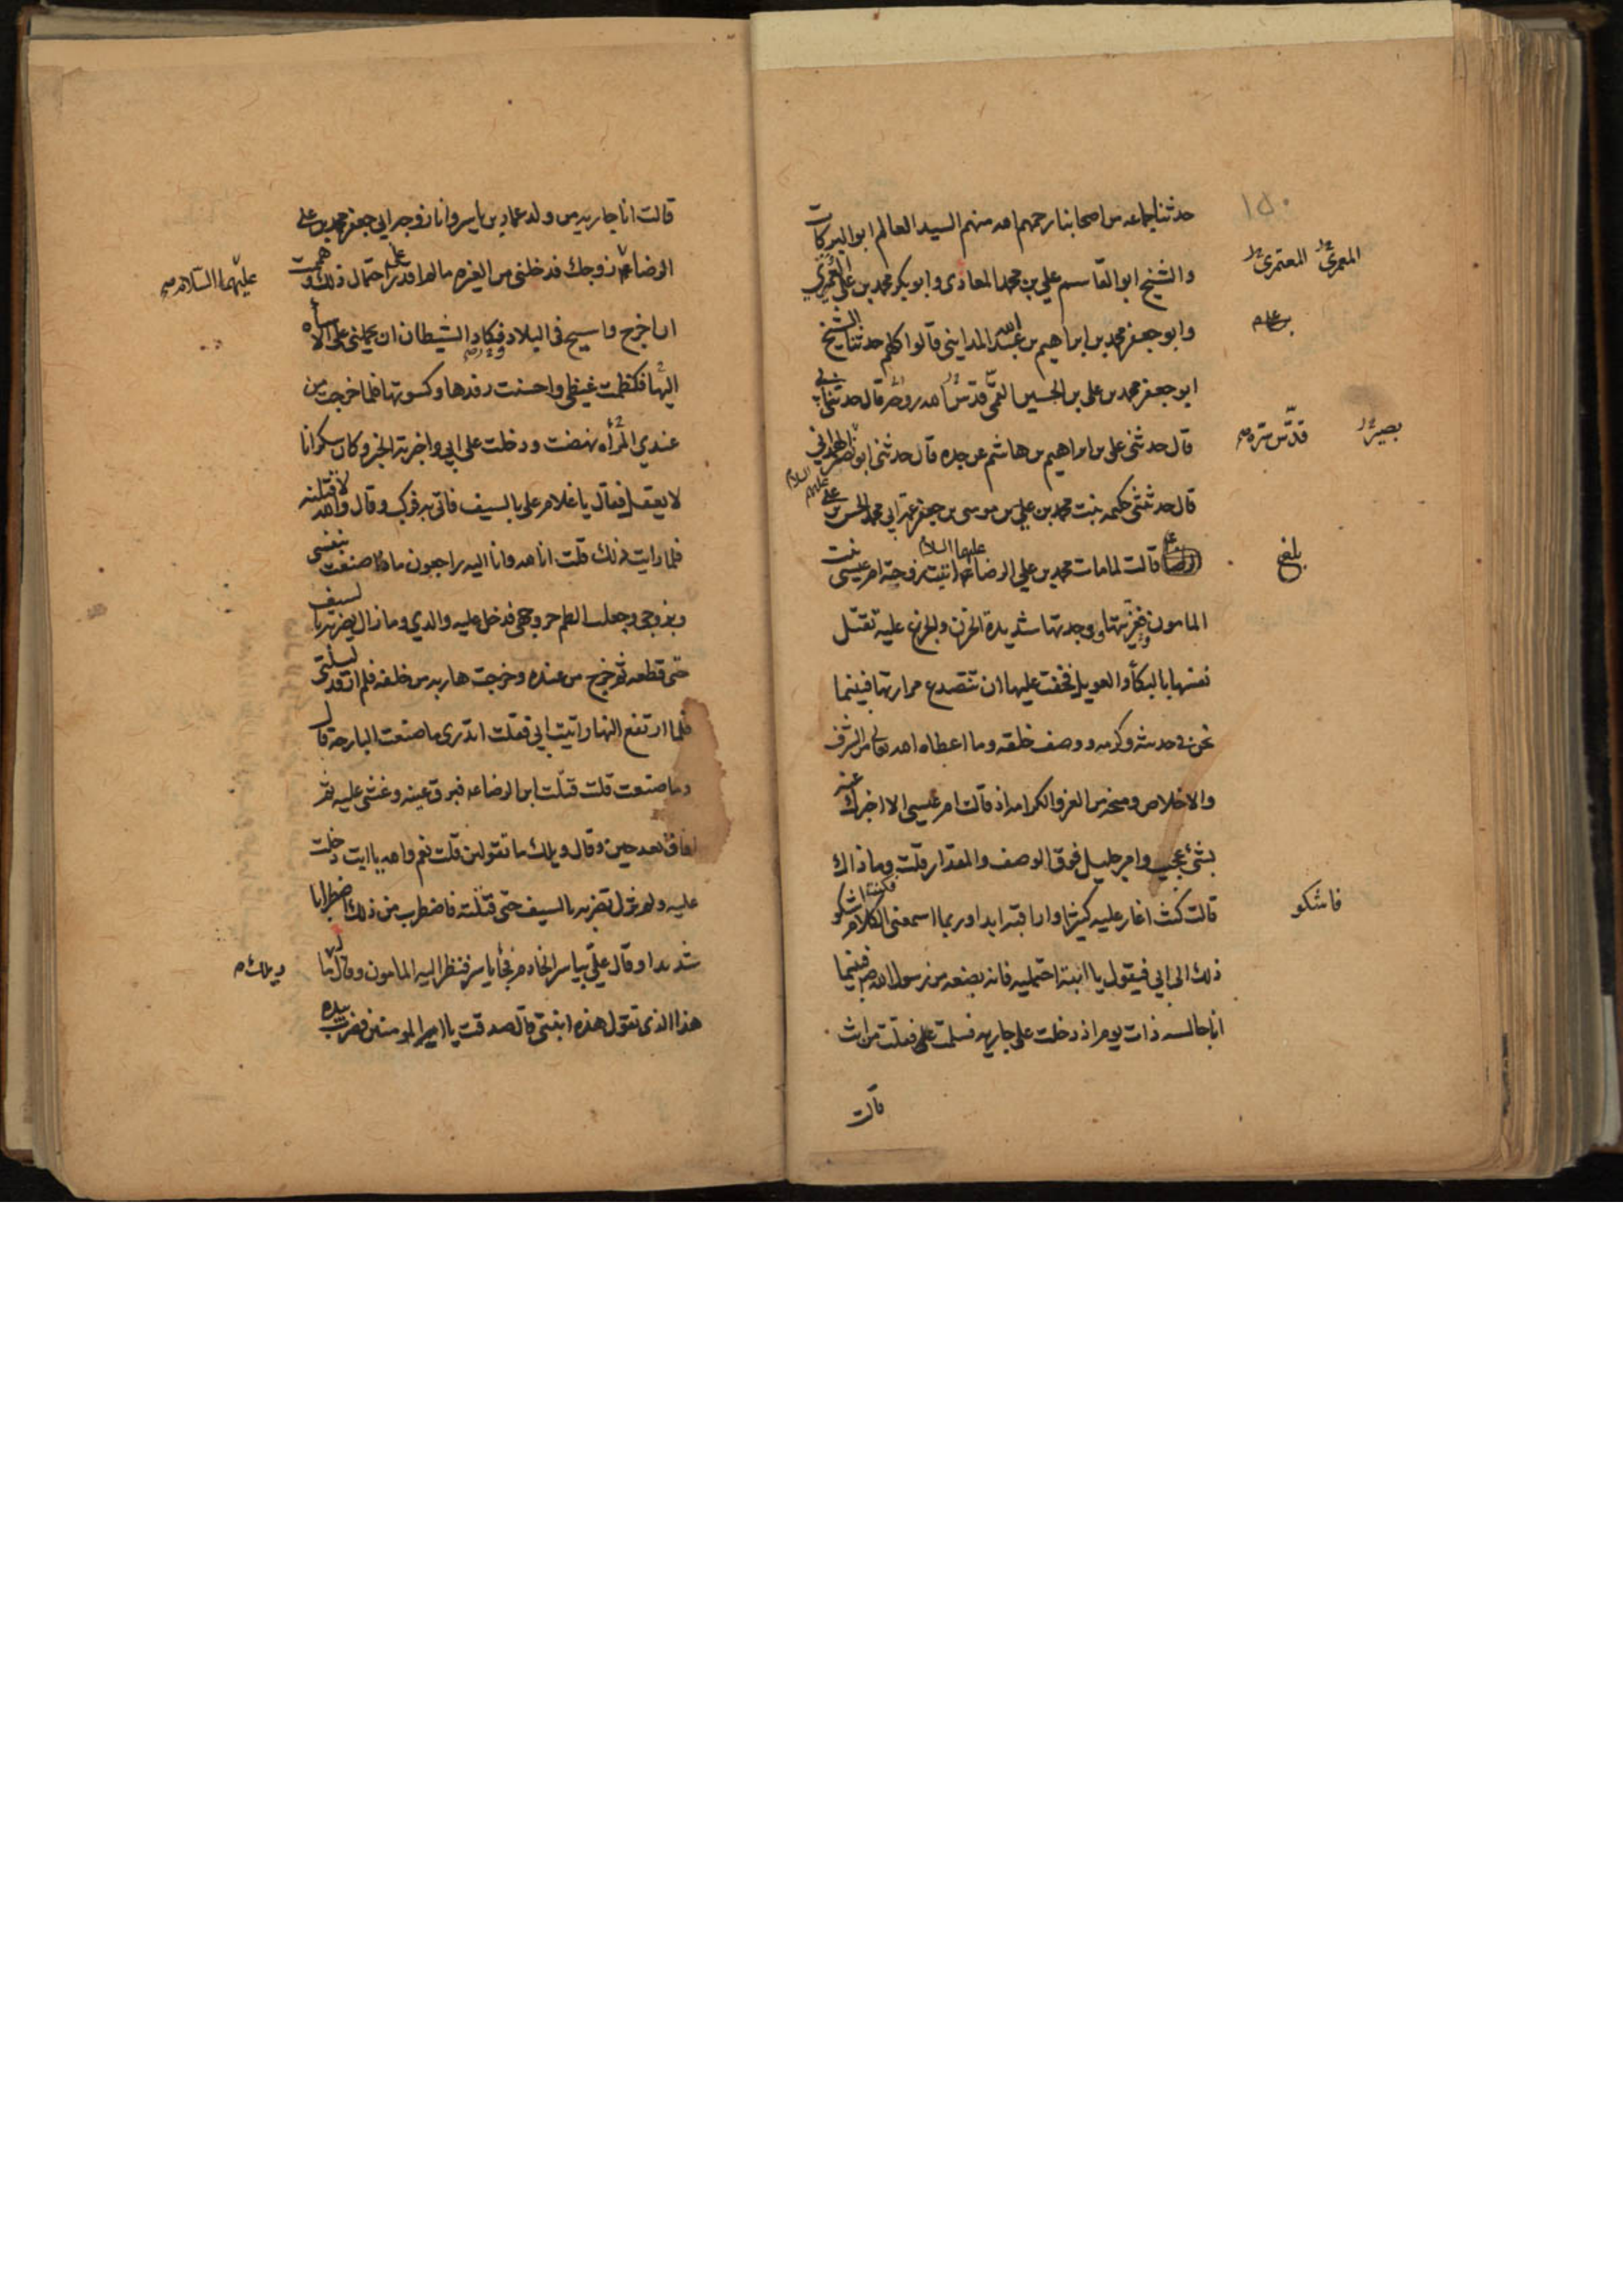 ١٥٠
حدثنا جماعه من اصحابنا رحمهم الله منهم السيد العالم ابو البركات
والشيخ ابو القاسم علي بن محمد المعاذى وابو بكر محمد بن على العمرى
المعمرى المعتمرى
وابو جعفر محمد بن ابراهيم بن عبد الله المداينى قالوا كلهم حدثنا الشيخ
ابو جعفر محمد بن على بن الحسين القمى قدس الله روحه قال حدثنى ابى
قال حدثنى على بن ابراهيم بن هاشم عن جده قال حدثنى ابو نصر الهمدانى
قدس سره
بصير
قال حدثتنى حكيمه بنت محمد بن على بن موسى بن جعفر عمة ابى محمد الحسن بن على عليهم السلام
قالت لما مات محمد بن على الرضا عليهما السلام اتيت زوجته ام عيسى بنت
بلغ
المامون فعزيتها ووجدتها شديدة الحزن والجزع عليه تقتل
نفسها بالبكاء والعويل فخفت عليها ان تتصدع مرارتها فبينما
نحن فى حديثه وكرمه ووصف خلقه وما اعطاه الله تعالى من الشرف
والاخلاص ومنحه من العز والكرامه اذ قالت ام عيسى الا اخبرك عنه
بشئ عجيب وامر جليل فوق الوصف والمقدار قلت وما ذاك
قالت كنت اغار عليه كثيرا واراقبه ابدا وربما اسمعنى الكلام فكنت اشكو
فاشكو
ذلك الى ابى فيقول يا ابنته احتمليه فانه بضعه من رسول الله ص فبينما
انا جالسه ذات يوم اذ دخلت على جاريه فسلمت على فقلت من انت
قالت
قالت انا جاريه من ولد عمار بن ياسر وانا زوجه ابى جعفر محمد بن على
الرضا زوجك فدخلنى من الغيره ما لم اقدر على احتمال ذلك وهممت
عليهما السلام
ان اخرج واسيح فى البلاد وكاد الشيطان ان يحملنى على الاساءه
اليها فكظمت غيظى واحسنت رفدها وكسوتها فلما خرجت من
عندى المرأه نهضت ودخلت على ابى واخبرته الخبر وكان سكرانا
لا يعقل فقال يا غلام على بالسيف فاتى به فركب وقال والله لاقتلنه
فلما رايت ذلك قلت انا لله وانا اليه راجعون ما ذا صنعت بنفسى
وبزوجى وجعلت الطم حر وجهى فدخل عليه والدى وما زال يضربه بالسيف
حتى قطعه ثم خرج من عنده وخرجت هاربه من خلفه فلم ارقد ليلتى
فلما ارتفع النهار اتيت ابى فقلت اتدرى ما صنعت البارحه قال
وما صنعت قلت قتلت ابن الرضا فبرق عينه وغشى عليه ثم
افاق بعد حين وقال ويلك ما تقولين قلت نعم والله يا ابت دخلت
عليه ولم تزل تضربه بالسيف حتى قتلته فاضطرب من ذلك اضطرابا
شديدا وقال على بياسر الخادم فجأ ياسر فنظر اليه المامون وقال ما
ويلك
هذا الذى تقول هذه ابنتى قال صدقت يا امير المومنين فضرب بيده